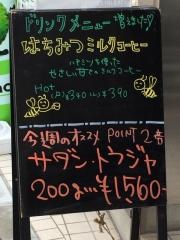 ドリンクメニュー増えました!
はちみつミルクコーヒー
ハチミツを使った
やさしい甘さのミルクコーヒー
Hot
(R)¥340 (L)¥390
今週のオススメ POINT 2倍
サダン・トラジャ
200g...¥1560-